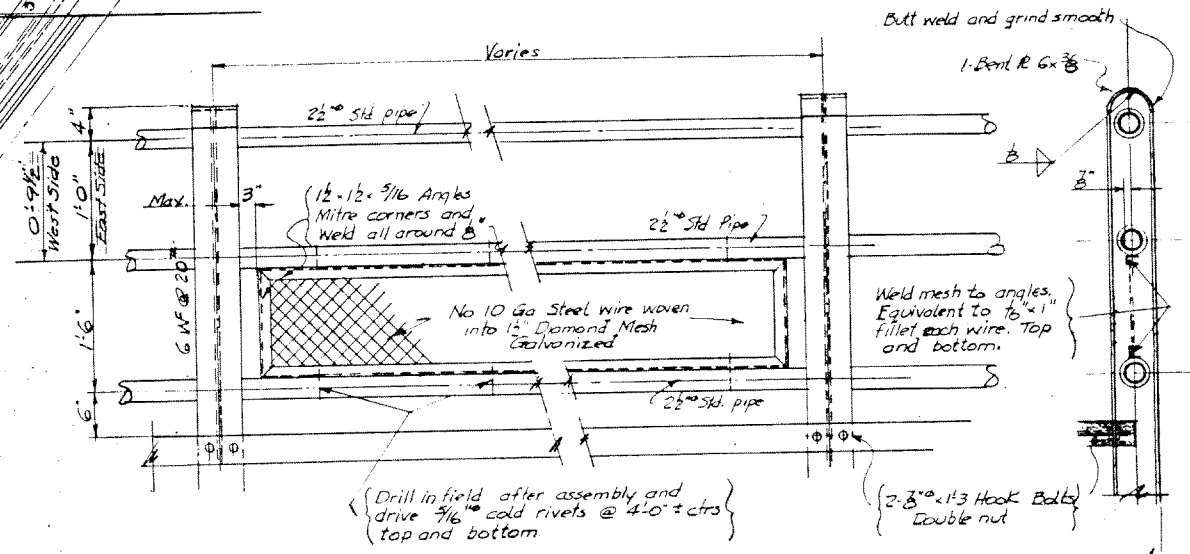 Butt weld and grind smooth
Varies
1-Bent ⅊ 6x⅜
2½"ø Std pipe
4"
0'-9½"
West Side
1'-0"
East Side
⅛
⅞"
Max.
3"
1½ x 1½ x 5/16 Angles
Mitre corners and
Weld all around ⅛"
2½"ø Std Pipe
6 WF @ 20#
1'-6"
No 10 Ga Steel wire woven
into 1½" Diamond Mesh
Galvanized
Weld mesh to angles.
Equivalent to 1/16" x 1"
fillet each wire. Top
and bottom.
2½"ø Std. pipe
6"
Drill in field after assembly and
drive 5/16"ø cold rivets @ 4'-0" ± ctrs
top and bottom
2-⅞"ø x 1'-3 Hook Bolts
Double nut